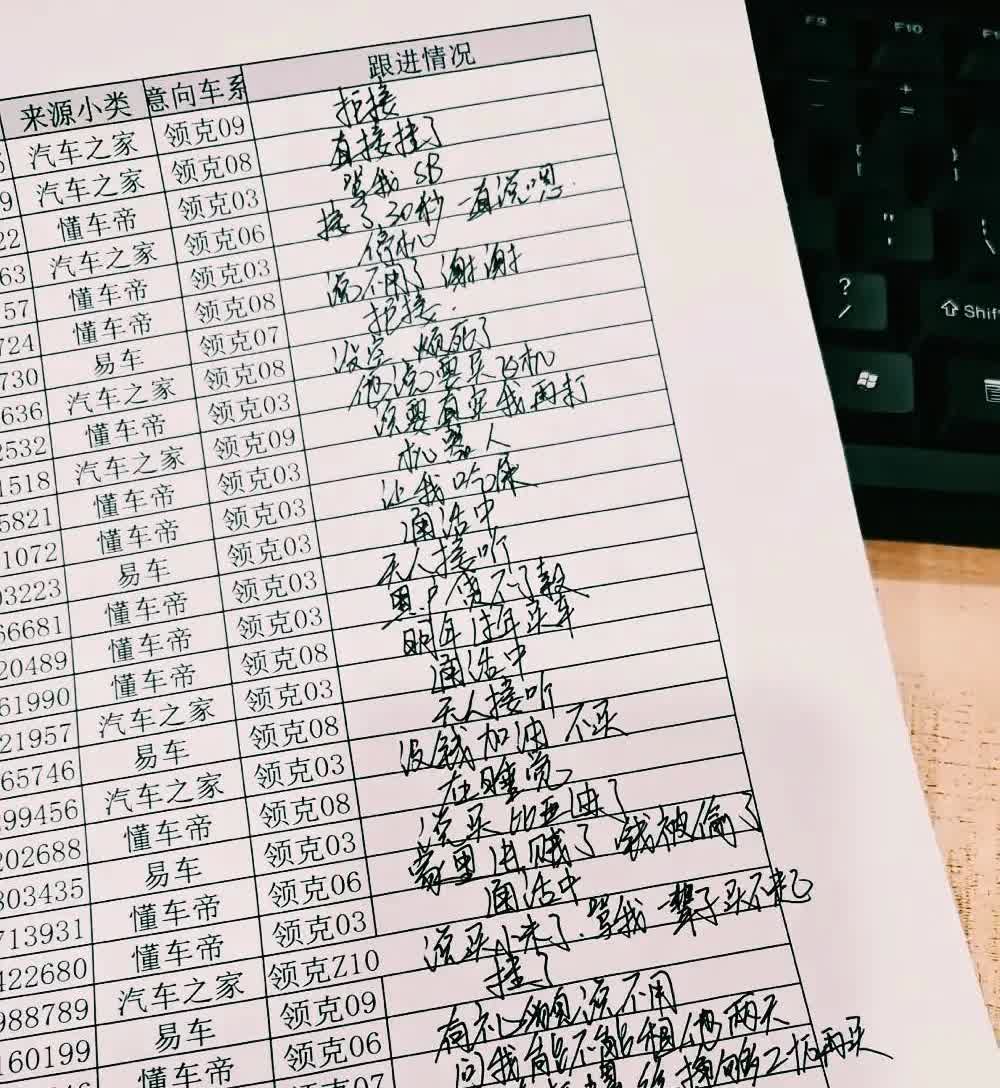 来源小类 意向车系 跟进情况
5 汽车之家 领克09 拒接
9 汽车之家 领克08 直接挂了
22 懂车帝 领克03 骂我SB
63 汽车之家 领克06 接了30秒一直说嗯.
57 懂车帝 领克03 停机
724 懂车帝 领克08 说不用了谢谢
730 易车 领克07 拒接.
636 汽车之家 领克08 没空 烦死了
2532 懂车帝 领克03 他说要买飞机
1518 汽车之家 领克09 要真 我再打
5821 懂车帝 领克03 机器人
1072 懂车帝 领克03 让我吃屎
03223 易车 领克03 通话中
66681 懂车帝 领克03 无人接听
20489 懂车帝 领克03 黑户贷不了款
61990 懂车帝 领克08 明年过年买车
21957 汽车之家 领克03 通话中
65746 易车 领克08 无人接听
99456 汽车之家 领克03 没钱加油 不买
202688 懂车帝 领克08 在睡觉
803435 易车 领克03 说买比亚迪了
713931 懂车帝 领克06 家里进贼了 钱被偷了
422680 懂车帝 领克03 通话中
988789 汽车之家 领克Z10 说买小米了.骂我一辈子买不起
160199 易车 领克09 挂了
懂车帝 领克06 有礼貌说不用
07 问我能不能租他两天
再买
F9 F10 F1
+
=
?
/
Shift